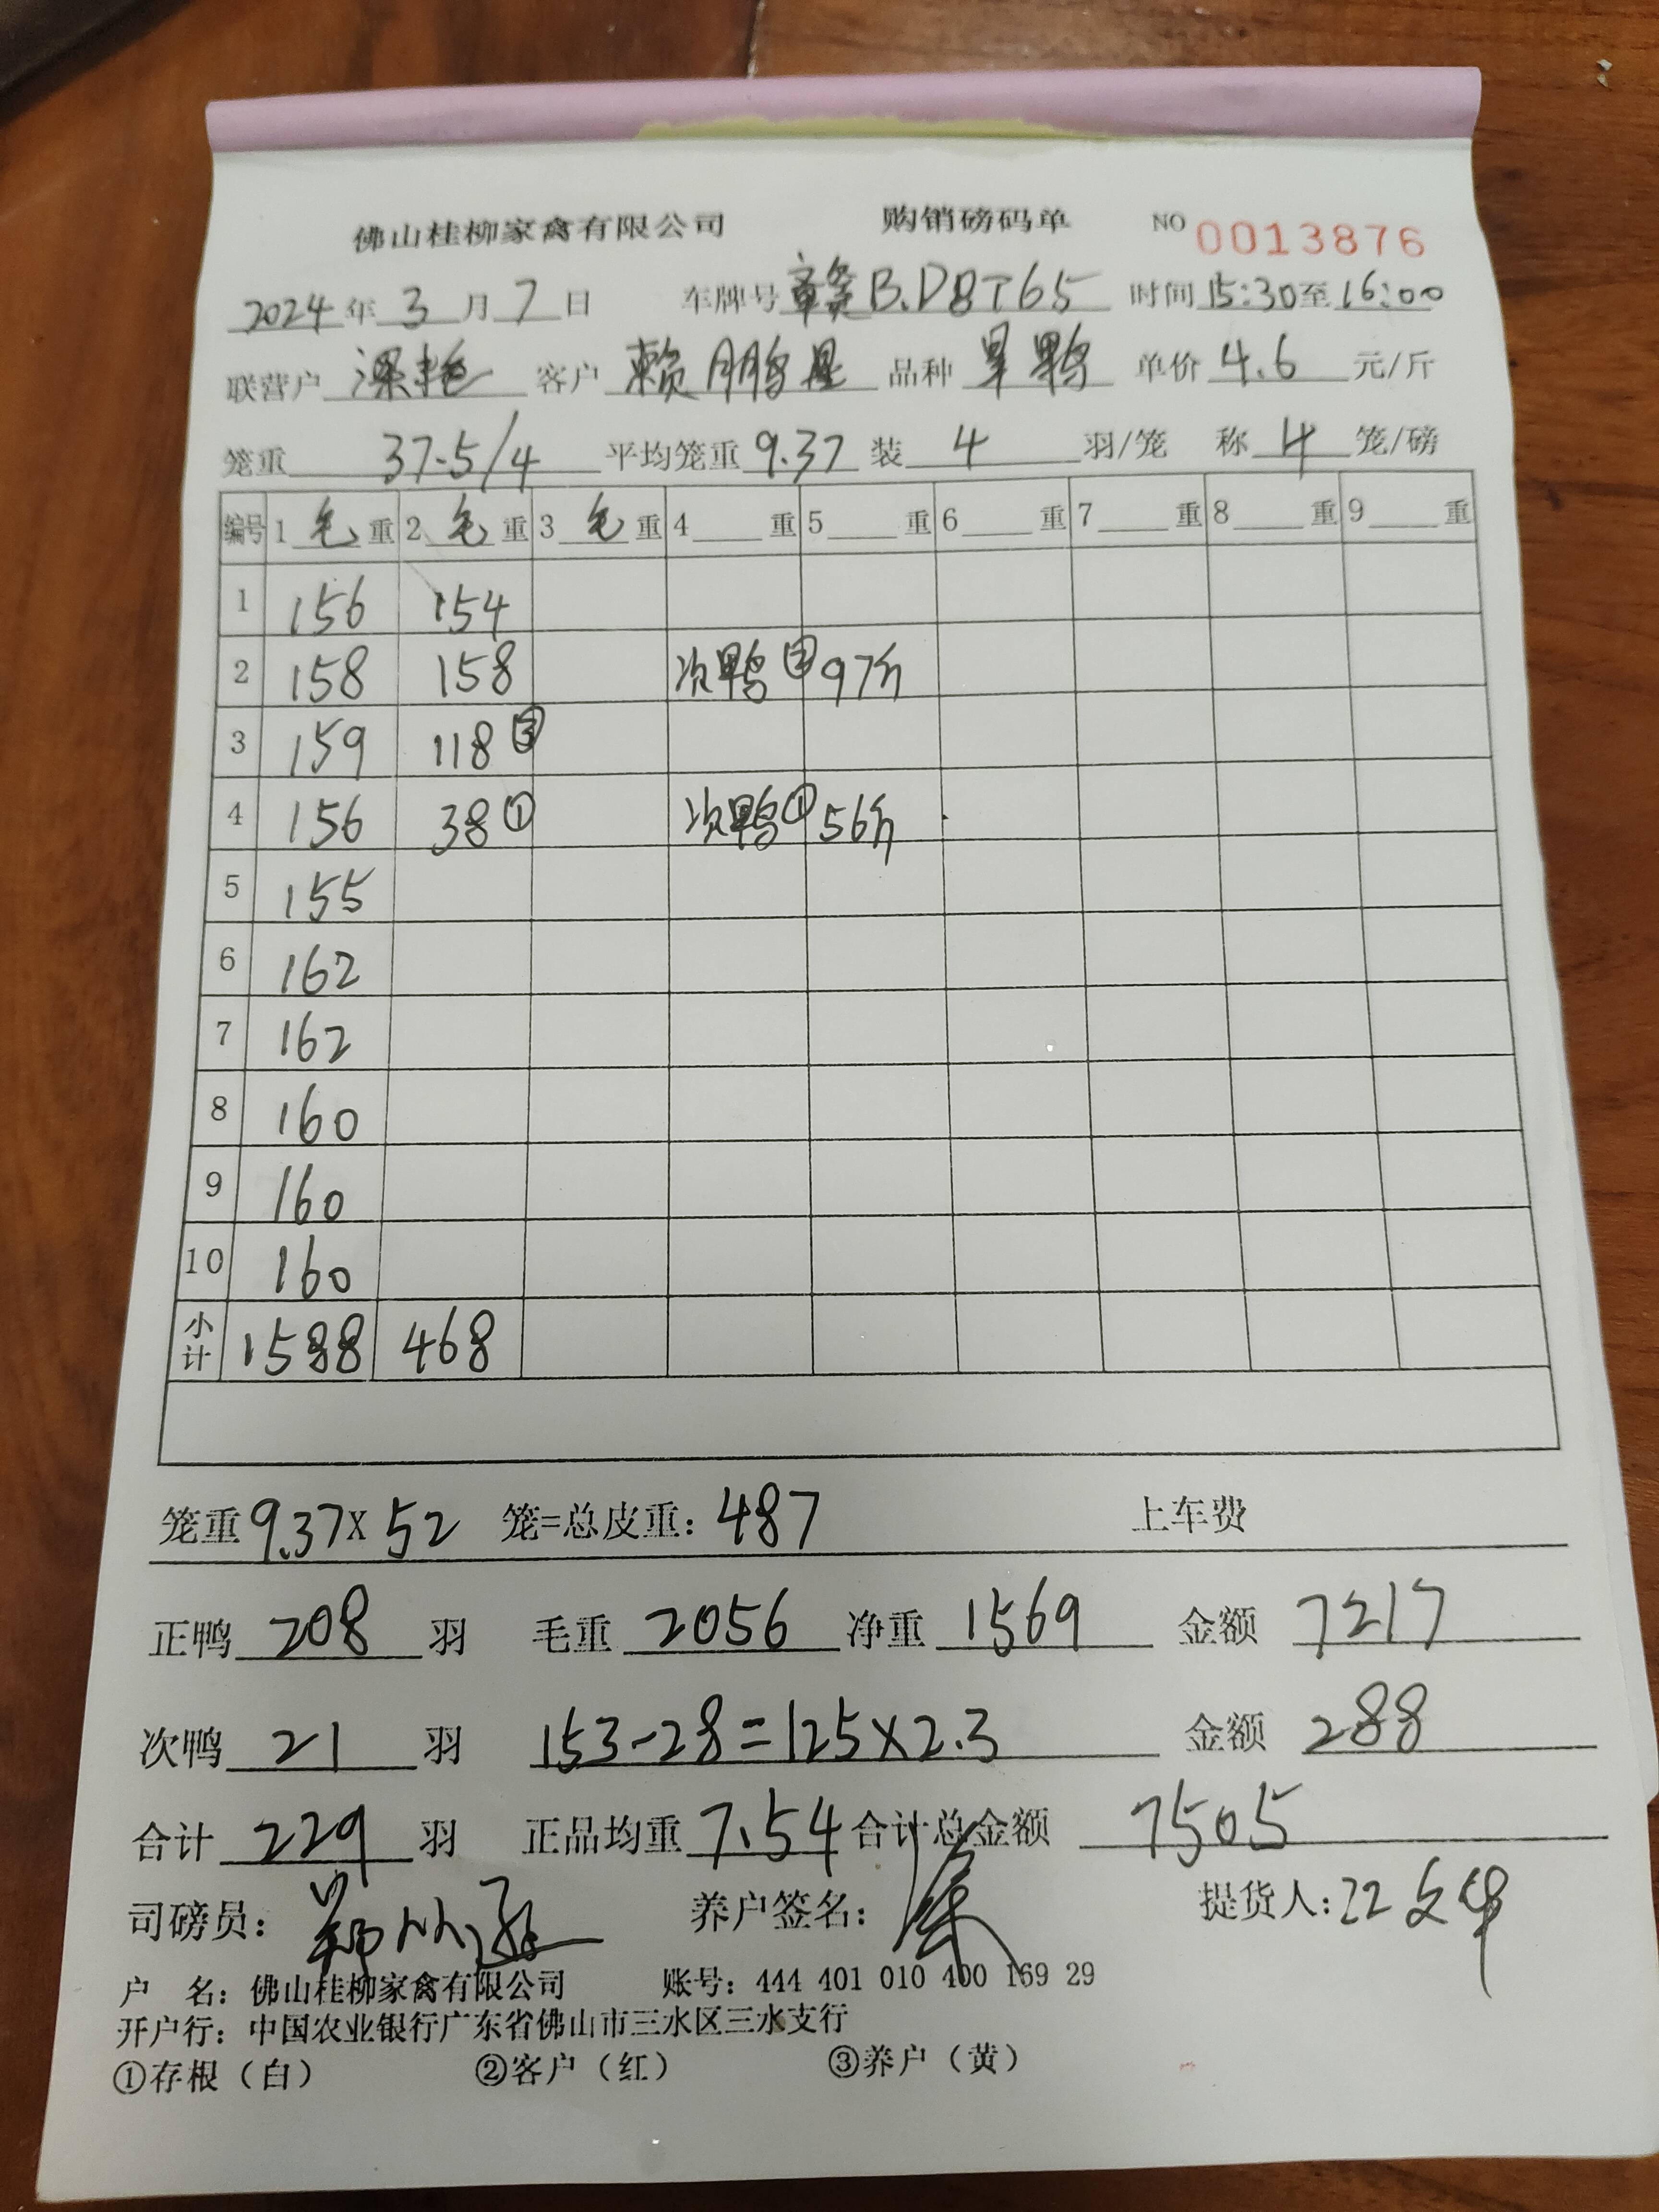 佛山桂柳家禽有限公司 购销磅码单 NO 0013876
2024年3月7日 车牌号 赣B.D8T65 时间 15:30至16:00
联营户 客户 赖鹏星 品种 旱鸭 单价 4.6 元/斤
笼重 37.5/4 平均笼重 9.37 装 4 羽/笼 称 4 笼/磅
编号 1 毛 重 2 毛 重 3 毛 重 4 重 5 重 6 重 7 重 8 重 9 重
1 156 154
2 158 158 次鸭② 97斤
3 159 118③
4 156 38① 次鸭① 56斤
5 155
6 162
7 162
8 160
9 160
10 160
小计 1588 468
笼重 9.37X52 笼=总皮重: 487 上车费
正鸭 208 羽 毛重 2056 净重 1569 金额 7217
次鸭 21 羽 153-28=125X2.3 金额 288
合计 229 羽 正品均重 7.54 合计总金额 7505
司磅员: 养户签名: 提货人:
户 名: 佛山桂柳家禽有限公司 账号: 444 401 010 400 169 29
开户行: 中国农业银行广东省佛山市三水区三水支行
①存根（白） ②客户（红） ③养户（黄）